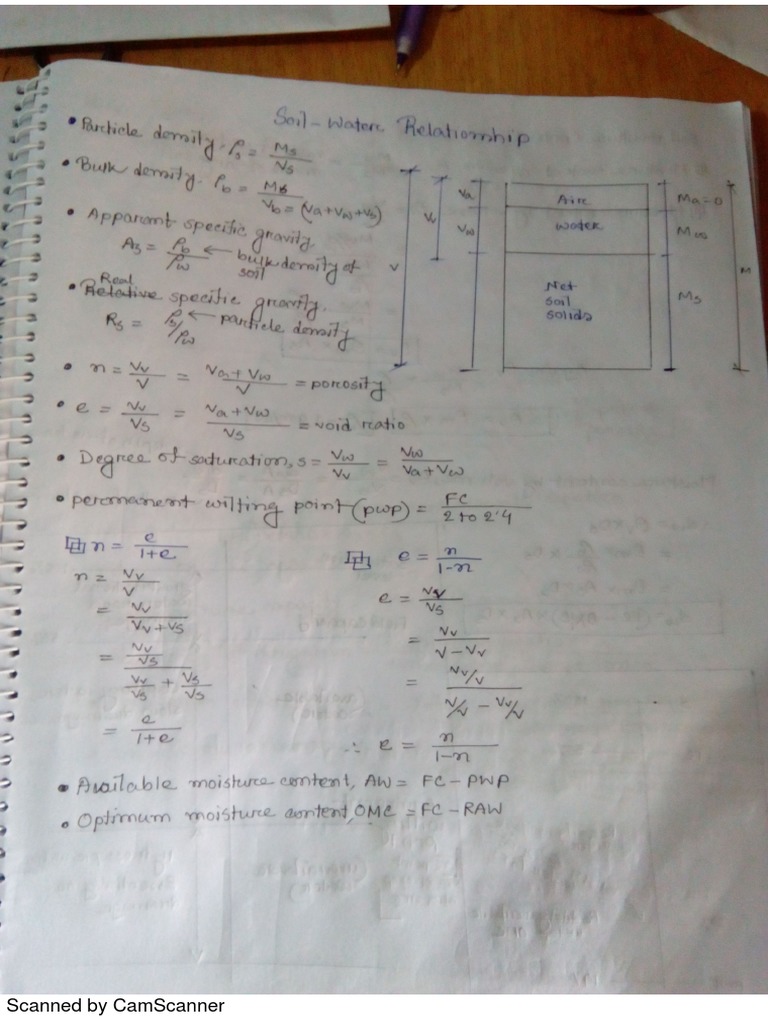 Soil-Water Relationship
• Particle density. ρs = Ms/Vs
• Bulk density. ρb = Ms/Vb = (Va+Vw+Vs)
• Apparent specific gravity.
As = ρb/ρw ← bulk density of soil
Real
• Relative specific gravity.
Rs = ρs/ρw ← particle density
V
Vv
Va
Vw
Air
Water
Net
soil
solids
Ma=0
Mw
Ms
M
• n = Vv/V = (Va+Vw)/V = porosity
• e = Vv/Vs = (Va+Vw)/Vs = void ratio
• Degree of saturation, s = Vw/Vv = Vw/(Va+Vw)
• permanent wilting point (pwp) = FC/(2 to 2.4)
n = e/(1+e)
n = Vv/V
= Vv/(Vv+Vs)
= (Vv/Vs)/(Vv/Vs + Vs/Vs)
= e/(1+e)
e = n/(1-n)
e = Vv/Vs
= Vv/(V-Vv)
= (Vv/V)/(V/V - Vv/V)
∴ e = n/(1-n)
• Available moisture content, AW = FC-PWP
• Optimum moisture content, OMC = FC-RAW
Scanned by CamScanner